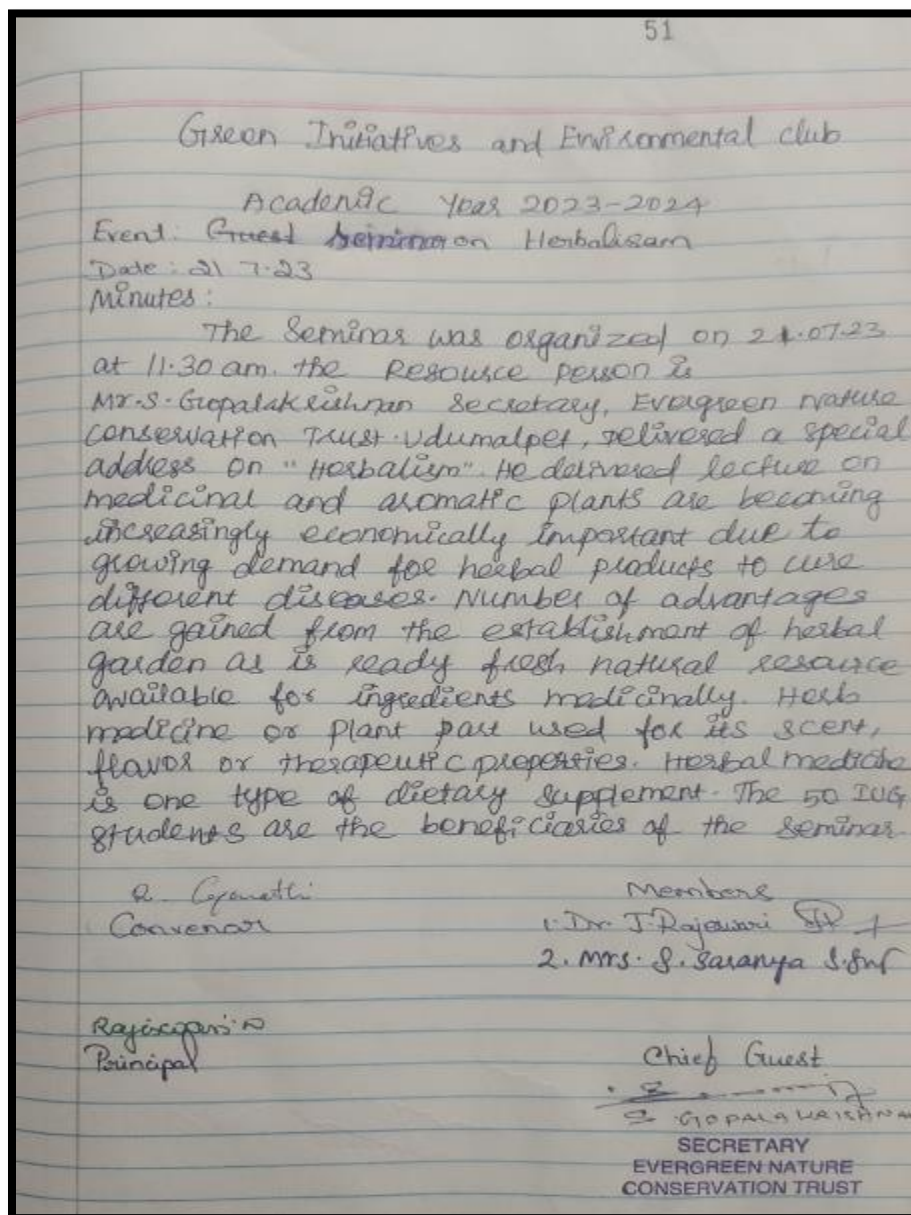 51
Green Initiatives and Environmental club
Academic Year 2023-2024
Event: Guest Seminar on Herbalisam
Date: 21 7.23
Minutes:
The Seminar was organized on 21.07.23
at 11.30 am. the Resource person is
Mr.S.Gopalakrishnan Secretary, Evergreen Nature
Conservation Trust.Udumalpet, Delivered a special
address on "Herbalism". He delivered lecture on
medicinal and aromatic plants are becoming
increasingly economically important due to
growing demand for herbal products to cure
different diseases. Number of advantages
are gained from the establishment of herbal
garden as is ready fresh natural resource
available for ingredients medicinally. Herb
medicine or plant part used for its scent,
flavor or therapeutic properties. Herbal medicine
is one type of dietary supplement. The 50 IUG
students are the beneficiaries of the seminar
Members
Convenor
1. Dr. J. Rajeswari
2. Mrs. S. Saranya
Principal
Chief Guest
S. GOPALAKRISHNAN
SECRETARY
EVERGREEN NATURE
CONSERVATION TRUST